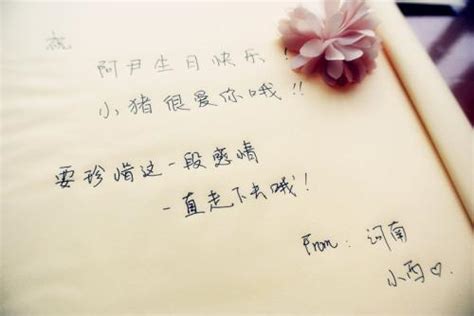 祝
阿尹生日快乐!
小猪很爱你哦!!
要珍惜这一段感情
一直走下去哦!
From: 河南
小西♡